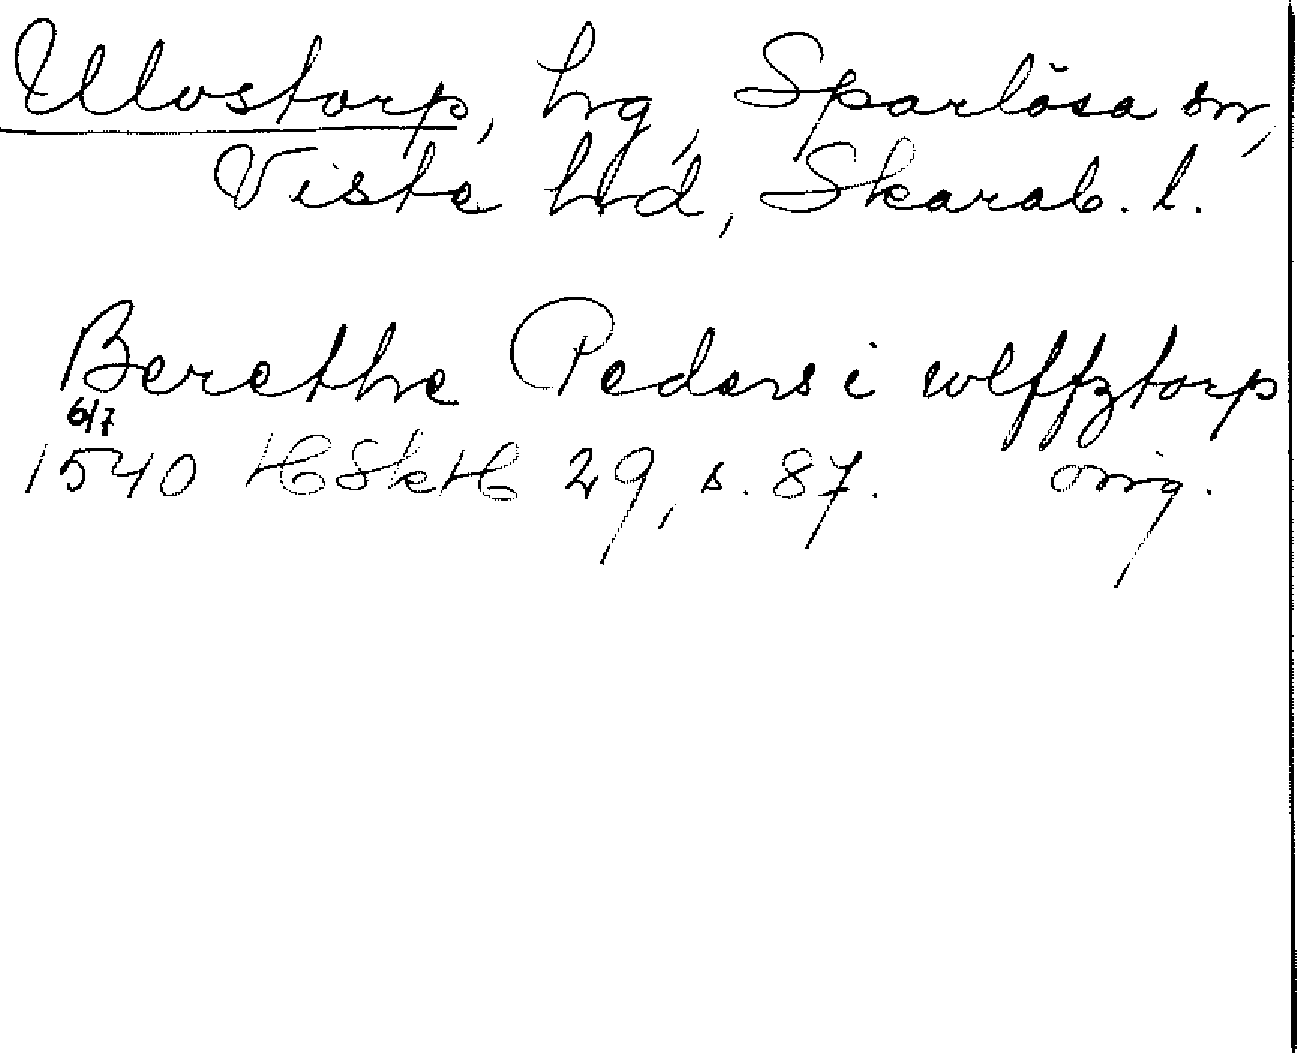 Ulvstorp, hg, Sparlösa sn,
Viste hd, Skarab. l.
Berethe Peders i wlffztorp
6/7
1540 HSkH 29, s. 87. orig.